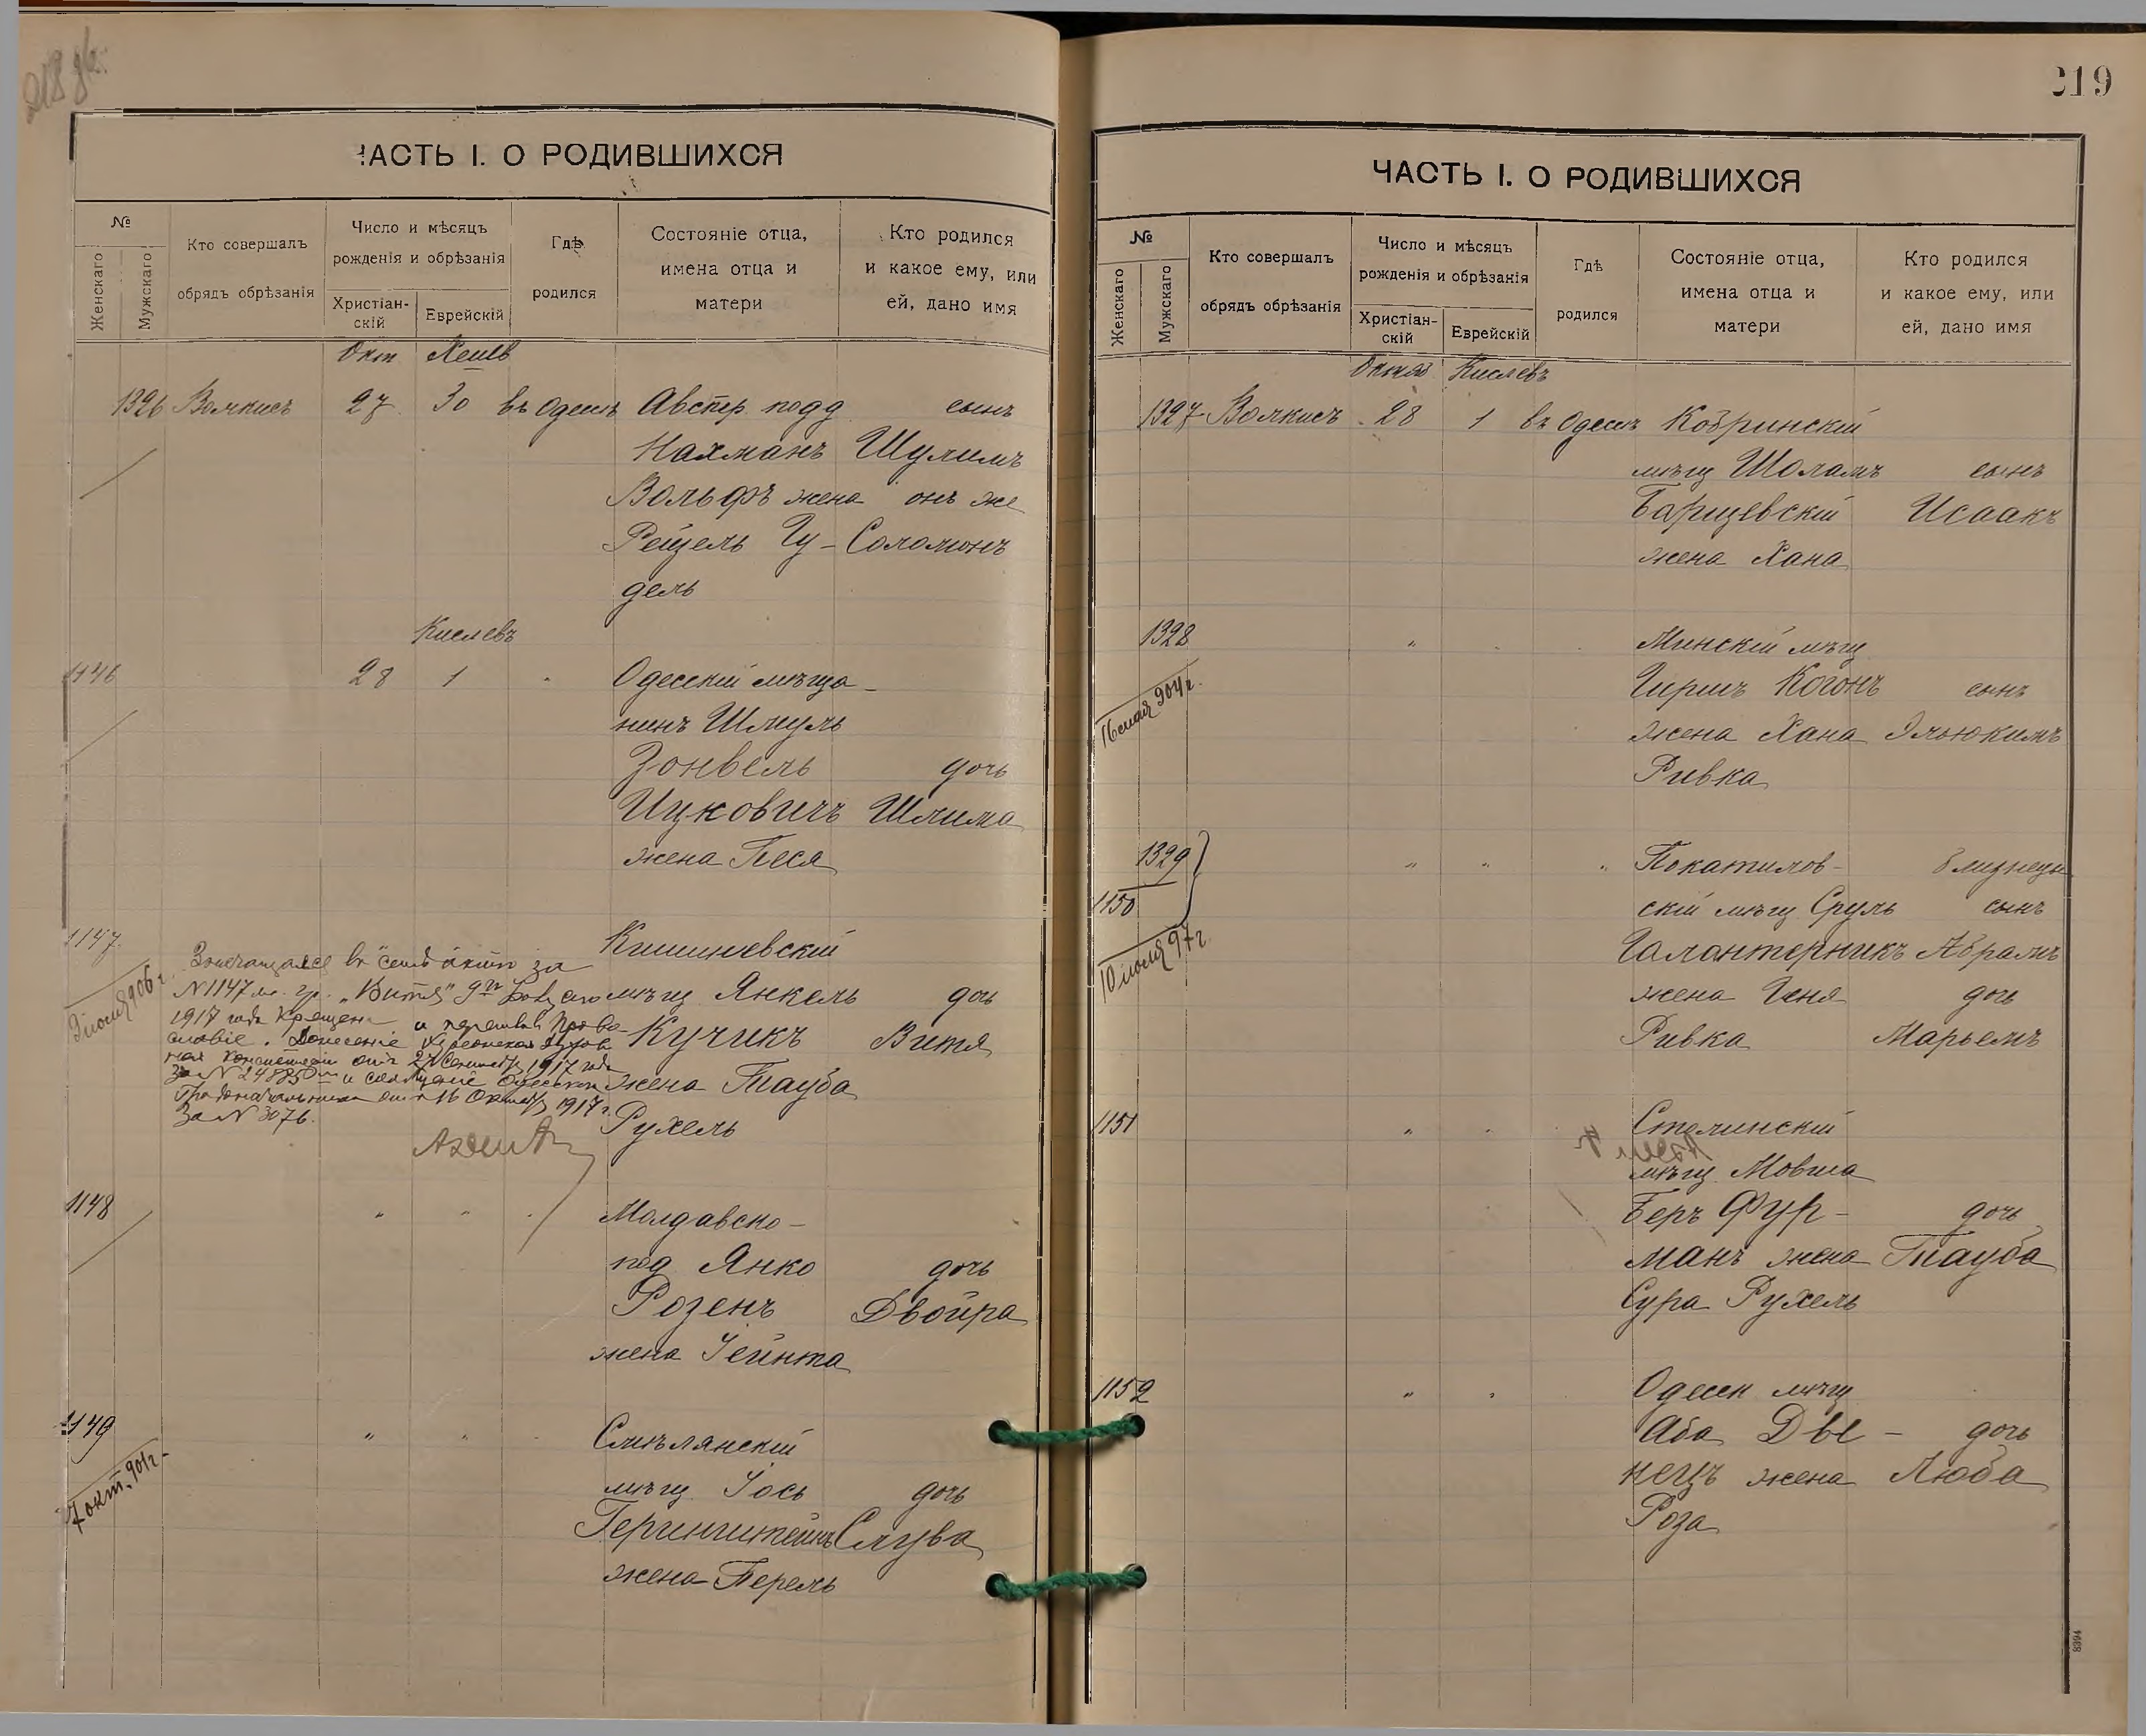 ЧАСТЬ I. О РОДИВШИХСЯ
№
Женскаго
Мужскаго
Кто совершалъ
обрядъ обрѣзанія
Число и мѣсяцъ
рожденія и обрѣзанія
Христіан-
скій
Еврейскій
Гдѣ
родился
Состояніе отца,
имена отца и
матери
Кто родился
и какое ему, или
ей, дано имя
Окт Хешв
1326 Волкисъ 27 30 въ Одессѣ Австер. подд сынъ
Нахманъ Шулимъ
Вольфъ жена онъ же
Рейзель Гу- Соломонъ
дель
Кислевъ
1146 28 1 " Одесскій мѣща-
нинъ Шмуль
Зонвель дочь
Ицковичъ Шлима
жена Песя
1147 Кишиневскій
мѣщ Янкель дочь
Кучикъ Витя
жена Тауба
Рухель
Значащаяся въ семъ актѣ за
N 1147 "Витя" 9го
1917 года крещена и перешла Право-
славіе. Донесеніе Херсонской Духов
ной Консисторіи отъ 27 Сентяб/ 1917 года
За N 24885 и сообщеніе Одесскаго
Градоначальника отъ 16 Октяб/ 1917 г.
За N 3076.
9 іюля 906 г.
1148 " " " Молдавско-
под Янко дочь
Розенъ Двойра
жена Іейнта
1149 " " " Смѣлянскій
мѣщ. Іось дочь
Герингштейнъ Слува
жена Перель
7 окт. 901 г.
219
ЧАСТЬ I. О РОДИВШИХСЯ
№
Женскаго
Мужскаго
Кто совершалъ
обрядъ обрѣзанія
Число и мѣсяцъ
рожденія и обрѣзанія
Христіан-
скій
Еврейскій
Гдѣ
родился
Состояніе отца,
имена отца и
матери
Кто родился
и какое ему, или
ей, дано имя
Октяб Кислевъ
1327 Волкисъ 28 1 въ Одессѣ Кобринскій
мѣщ Шоламъ сынъ
Барщевскій Исаакъ
жена Хана
1328 " " Минскій мѣщ
Гиршъ Когонъ сынъ
жена Хана Эльюкимъ
Ривка
16 мая 904 г.
1329 " " " Покатилов- близнецы
1150 скій мѣщ Сруль сынъ
Галантерникъ Абрамъ
жена Геня дочь
Ривка Марьемъ
10 іюля 97 г.
1151 " " Столинскій
мѣщ. Мовша
Беръ Фур- дочь
манъ жена Тауба
Сура Рухель
1152 " " Одесск мѣщ
Аба Две- дочь
нецъ жена Люба
Роза
8394